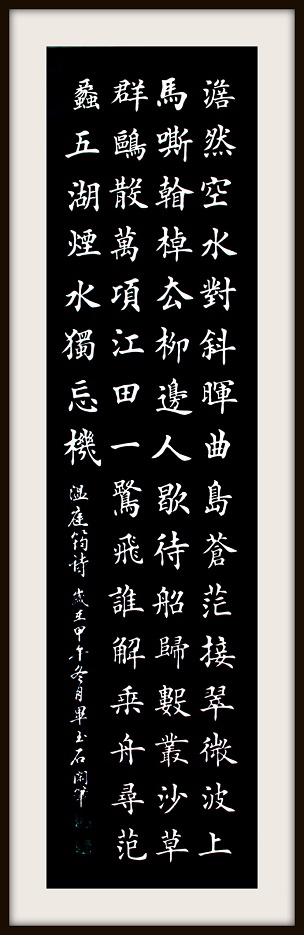 澹然空水對斜暉曲島蒼茫接翠微波上
馬嘶看棹厺柳邊人歇待船歸數叢沙草
群鷗散萬項江田一鷺飛誰解乘舟尋范
蠡五湖煙水獨忘機
溫庭筠詩 歲在甲午冬月畢玉石閑筆